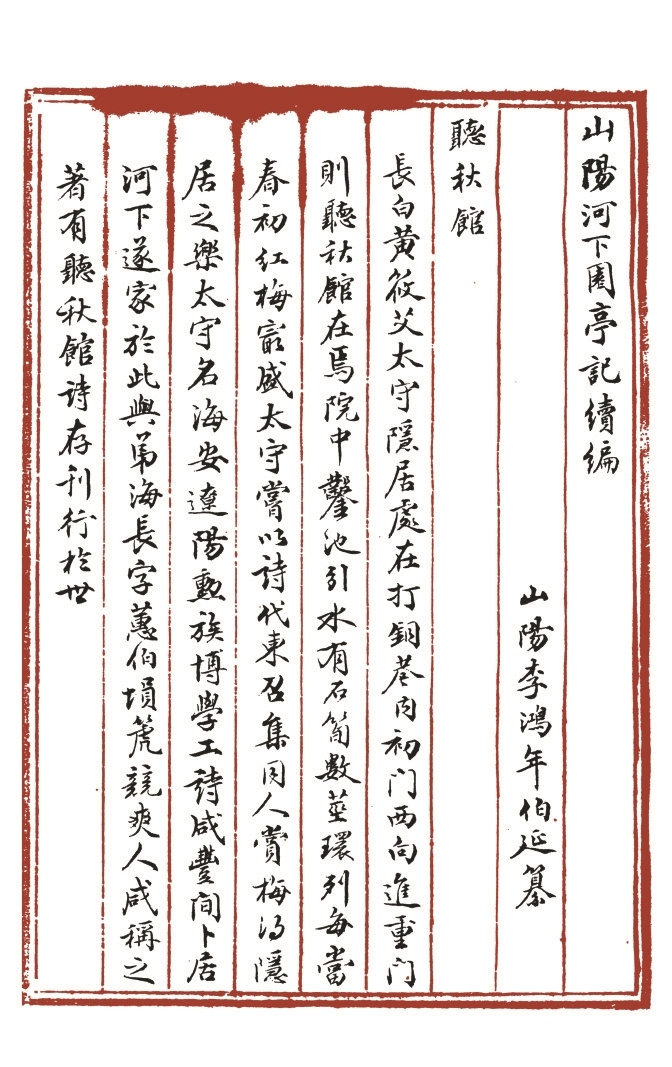 山陽河下園亭記續編
山陽李鴻年伯延纂
聽秋館
長白黃筱艾太守隱居處在打銅巷內初門西向進重門
則聽秋館在焉院中鑿池引水有石筍數莖環列每當
春初紅梅最盛太守嘗以詩代柬召集同人賞梅得隱
居之樂太守名海安遼陽勳族博學工詩咸豐間卜居
河下遂家於此與弟海長字蕙伯塤箎競爽人咸稱之
著有聽秋館詩存刊行於世